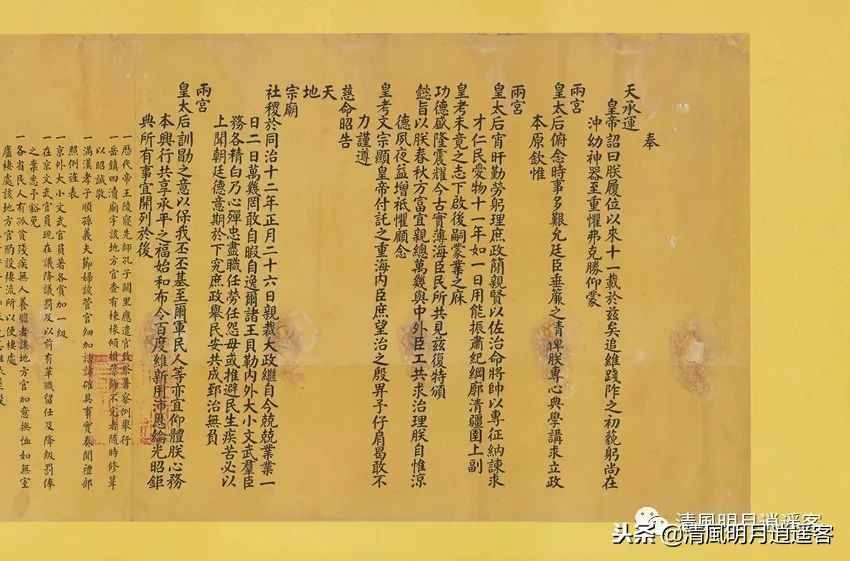 奉
天承運
皇帝詔曰朕履位以來十一載於茲矣追維踐阼之初藐躬尚在
沖幼神器至重懼弗克勝仰蒙
兩宮
皇太后俯念時事多艱允廷臣垂簾之請俾朕專心典學講求立政
本原欽惟
兩宮
皇太后宵旰勤勞躬理庶政簡親賢以佐治命將帥以專征納諫求
才仁民愛物十一年如一日用能振肅紀綱廓清疆圉上副
皇考未竟之志下啟後嗣蒙業之庥
功德巍隆震耀今古實薄海臣民所共見茲復特頒
懿旨以朕春秋方富宜親總萬幾與中外臣工共求治理朕自惟涼
德夙夜益增祗懼顧念
皇考文宗顯皇帝付託之重海內臣庶望治之殷畀予仔肩曷敢不
力謹遵
慈命昭告
天
地
宗廟
社稷於同治十二年正月二十六日親裁大政繼自今兢兢業業一
日二日萬幾罔敢自暇自逸爾諸王貝勒內外大小文武羣臣
務各精白乃心殫忠盡職任勞任怨毋或推避民生疾苦必以
上聞朝廷德意期於下究庶政舉民安共成郅治無負
兩宮
皇太后訓勖之意以保我丕丕基至爾軍民人等亦宜仰體朕心務
本興行共享承平之福始和布令百度維新用沛恩綸光昭鉅
典所有事宜開列於後
一歷代帝王陵寢先師孔子闕里應遣官致祭著察例舉行
一嶽鎮四瀆廟宇該地方官查有棟椽傾頹牆垣不完者隨時修葺
以昭誠敬
一滿漢孝子順孫義夫節婦該管官細加諮訪確具事實奏聞禮部
照例旌表
一京外大小文武官員著各賞加一級
一在京文武官員現在議降議罰及以前有革職留任及降級罰俸
之案悉予豁免
一各省民人有孤貧殘疾無人養贍者該地方官加意撫恤如無室
廬棲處該地方官酌設棲流所以便棲處
清風明月逍遥客
头条@清風明月逍遥客